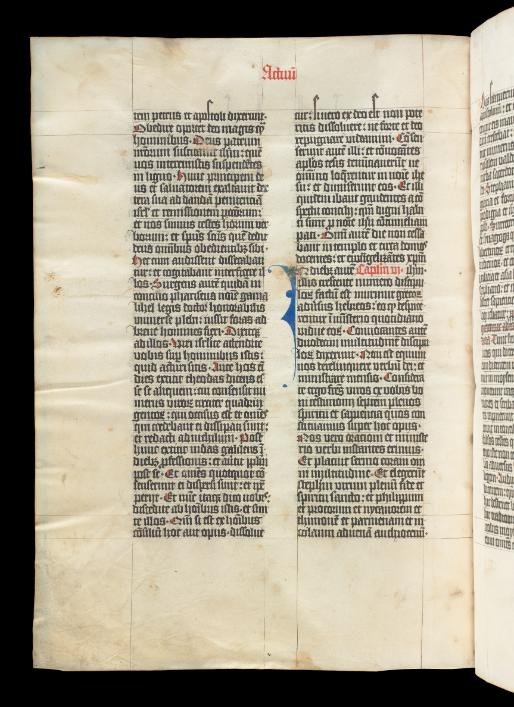 Actuū
tem petrus et apostoli dixerunt·
Obedire oportet deo magis q̄
hominibus· Deus patrum
nostrorum suscitauit ihm: quē
uos interemistis suspendētes
in ligno· Hunc principem de
us et saluatorem exaltauit dex
tera sua ad dandā penitentiā
isrl et remissionem
et nos sumus testes horum uer
borum: et sp̄us sc̄us quē dedit
deus omnibus obedientibꝫ sibi·
Hec cum audissent dissecaban
tur: et cogitabant interficere il
los· Surgens autē quidā in
concilio phariseus noīe gama
liel legis doctor honorabilis
uniuerse plebi: iussit foras ad
breue homines fieri· Dixitqꝫ
ad illos· Uiri isrlite attendite
uobis sup hominibus istis:
quid acturi sitis· Ante hos eī
dies extitit theodas dicens es
se se aliquem: cui consensit nu
merus uiroꝝ circiter quadrin
gentoꝝ: qui occisus est et om̄es
qui credebant ei dissipati sunt:
et redacti ad nichilum· Post
hunc extitit iudas galileus ī
diebꝫ pfessionis: et auertit pplm
post se· Et om̄es quotquot cō
senserunt ei dispersi sunt: et ip̄e
perijt· Et nūc itaqꝫ dico uobis:
discedite ab hoībus istis· et sini
te illos· Qm̄ si est ex hoībus
cōsiliū hoc aut opus· dissolue
tur: si uero ex deo est non pote
ritis dissoluere: ne forte et deo
repugnare uideamini· Cōsen
serunt autē illi: et cōuocātes
aplos cesis denūciauerūt ne
omnino loquerentur in noīe ihe
su: et dimiserunt eos· Et illi
quidem ibant gaudentes a cō
spectu concilij: qm̄ digni habi
ti sunt p noīe ihu contumeliam
pati· Om̄i autē die non cessa
bant in templo et circa domos
docentes: et euāgelizātes xpm̄
diebꝫ autē Capl'm vi· ihm̄·
illis crescente numero discipu
loꝝ factū est murmur grecoꝝ
aduersus hebreos: eo qꝫ despice
rentur ī ministerio quotidiano
uidue eoꝝ· Conuocantes autē
duodecim multitudinē discipu
loꝝ dixerunt· Non est equum
nos derelinquere verbū dei: et
ministrare mensis· Considera
te ergo fratres uiros ex uobis bo
ni testimonij septem plenos
spiritu et sapientia quos con
stituamus super hoc opus·
Nos vero orationi et ministe
rio verbi instantes erimus·
Et placuit sermo coram om̄i
multitudine· Et elegerūt
stephanū virum plenū fide et
spiritu sancto: et philippum
et procorum et nycanorem et
thimonē et parmenam et ni
colaum aduenā anthiocenū·